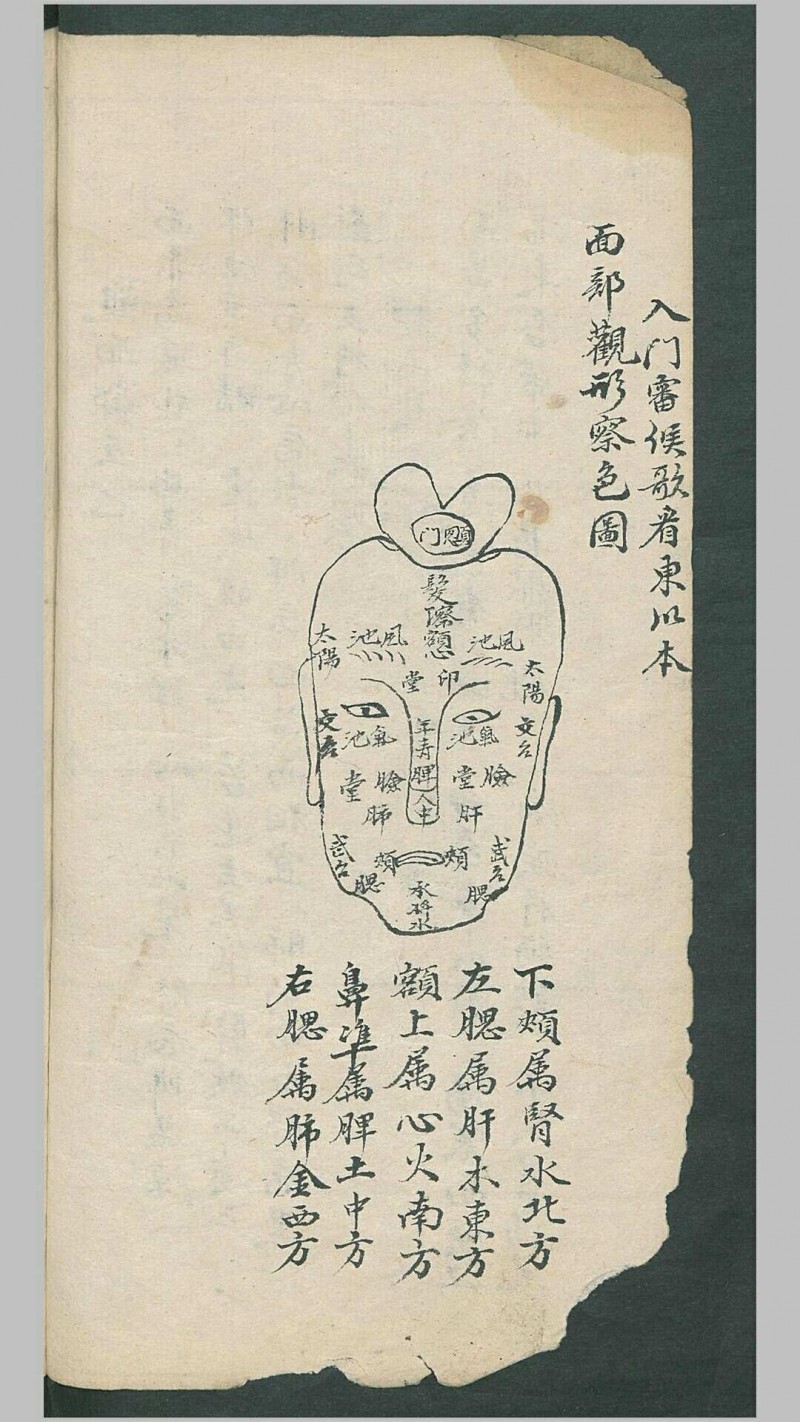 入门審候歌看東㕥本
面部觀形察色圖
顖门
髮際額
風池
風池
太陽
太陽
印堂
文台
文台
氣池
氣池
年壽
脾
人中
臉堂
臉堂
肝
肺
武台
武台
頰
頰
腮
腮
承將水
下頰属腎水北方
左腮属肝木東方
額上属心火南方
鼻準属脾土中方
右腮属肺金西方